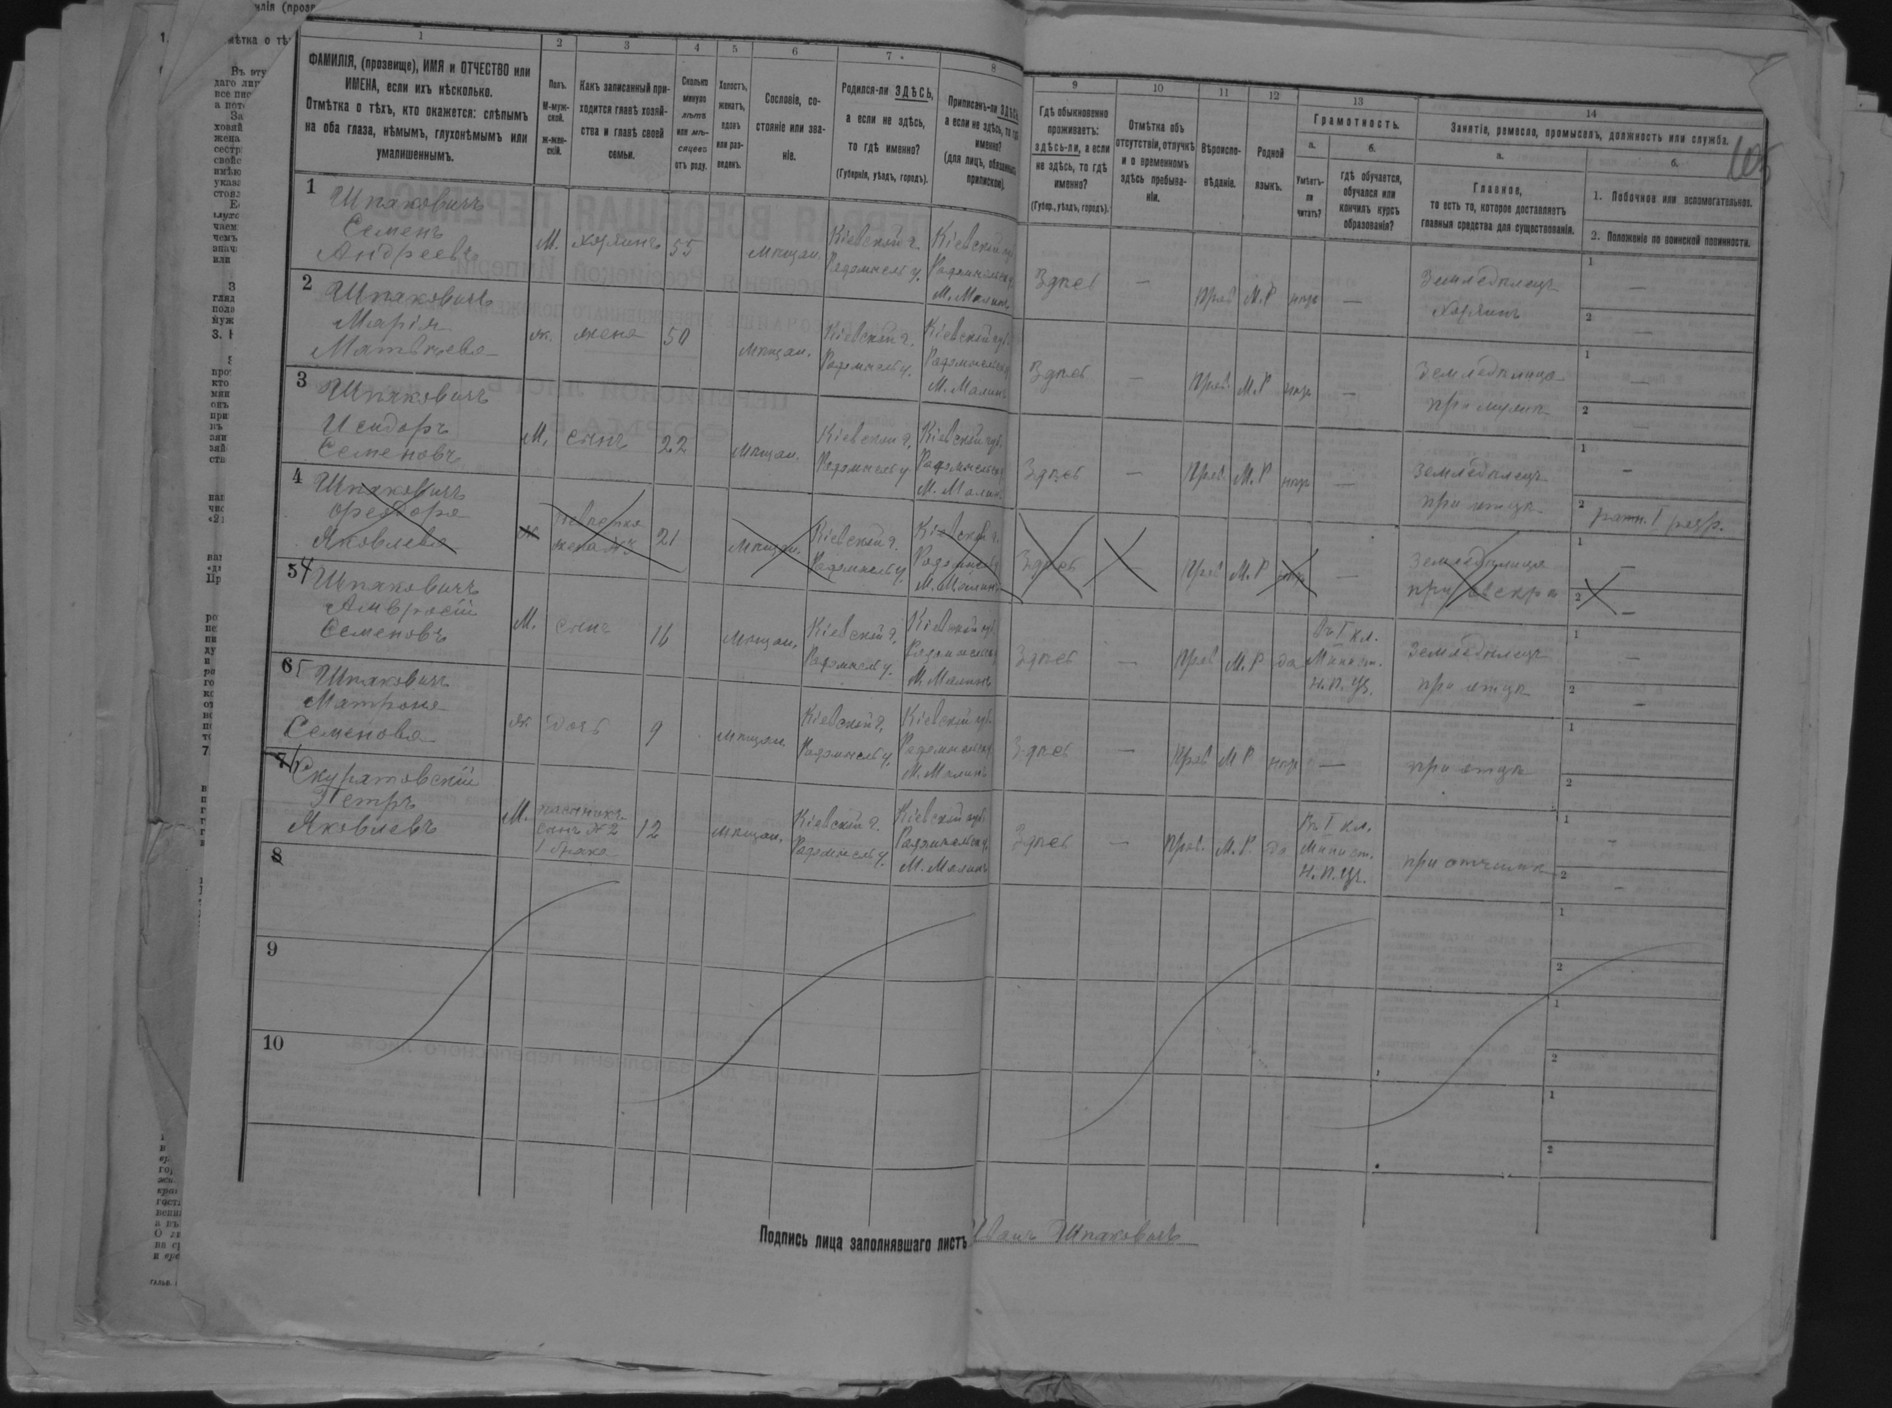 1
ФАМИЛІЯ, (прозвище), ИМЯ и ОТЧЕСТВО или
ИМЕНА, если ихъ нѣсколько.
Отмѣтка о тѣхъ, кто окажется: слѣпымъ
на оба глаза, нѣмымъ, глухонѣмымъ или
умалишеннымъ.
2
Полъ.
М-муж-
ской.
ж-жен-
скій.
3
Какъ записанный при-
ходится главѣ хозяй-
ства и главѣ своей
семьи.
4
Сколько
минуло
лѣтъ
или мѣ-
сяцевъ
отъ роду.
5
Холостъ,
женатъ,
вдовъ
или раз-
веденъ.
6
Сословіе, со-
стояніе или зва-
ніе.
7
Родился-ли ЗДѢСЬ,
а если не здѣсь,
то гдѣ именно?
(Губернія, уѣздъ, городъ).
8
Приписанъ-ли ЗДѢСЬ,
а если не здѣсь, то гдѣ
именно?
(для лицъ, обязанныхъ
припиской).
9
Гдѣ обыкновенно
проживаетъ:
здѣсь-ли, а если
не здѣсь, то гдѣ
именно?
(Губер., уѣздъ, городъ).
10
Отмѣтка объ
отсутствіи, отлучкѣ
и о временномъ
здѣсь пребыва-
ніи.
11
Вѣроиспо-
вѣданіе.
12
Родной
языкъ.
13
Грамотность.
а.
Умѣетъ-
ли
читать?
б.
гдѣ обучается,
обучался или
кончилъ курсъ
образованія?
14
Занятіе, ремесло, промыселъ, должность или служба.
а.
Главное,
то есть то, которое доставляетъ
главныя средства для существованія.
б.
1. Побочное или вспомогательное.
2. Положеніе по воинской повинности.
105
1
Шпаковичъ
Семенъ
Андреевъ
М. хозяинъ 55 мѣщан. Кіевской г. Радомысл у. Кіевской губ. Радомысльск у. М. Малинъ Здѣсь — Прав М.Р нѣтъ — Земледѣлецъ Хозяинъ
2
Шпаковичъ
Марія
Матвѣева
ж. жена 50 мѣщан. Кіевской г. Радомысл у. Кіевской губ. Радомысльск у. М. Малинъ Здѣсь — Прав. М.Р нѣтъ — Земледѣлица при мужѣ
3
Шпаковичъ
Исидоръ
Семеновъ
М. сынъ 22 мѣщан. Кіевской г. Радомысл у. Кіевской губ. Радомысльск у. М. Малинъ Здѣсь — Прав. М.Р нѣтъ — Земледѣлецъ при отцѣ ратн. I разр.
4
Шпаковичъ
Яковлева
ж невѣстка жена №3 21 мѣщан. Кіевской г. Радомысл у. Кіевской г. Радомысл у М. Малинъ Здѣсь — Прав М.Р нѣтъ — Земледѣлица при свекрѣ
5 4
Шпаковичъ
Амвросій
Семеновъ
М. сынъ 16 мѣщан. Кіевской г. Радомысл у. Кіевской губ. Радомысльск у М. Малинъ Здѣсь — Прав М.Р да Въ I кл. Минист. Н.П. Уч. Земледѣлецъ при отцѣ
6 5
Шпаковичъ
Матрона
Семенова
ж дочь 9 мѣщан. Кіевской г. Радомысл у. Кіевской губ. Радомысльск у. М. Малинъ Здѣсь — Прав М.Р нѣтъ — при отцѣ
7 6
Скуратовскій
Петръ
Яковлевъ
М. пасынокъ сынъ №2 I брака 12 мѣщан. Кіевской г. Радомысл у. Кіевской губ. Радомысльск у. М. Малинъ Здѣсь — Прав. М.Р. да Въ I кл. Минист. Н.П. Уч. при отчимѣ
8
9
10
Подпись лица заполнявшаго листъ Иванъ Шпаковичъ